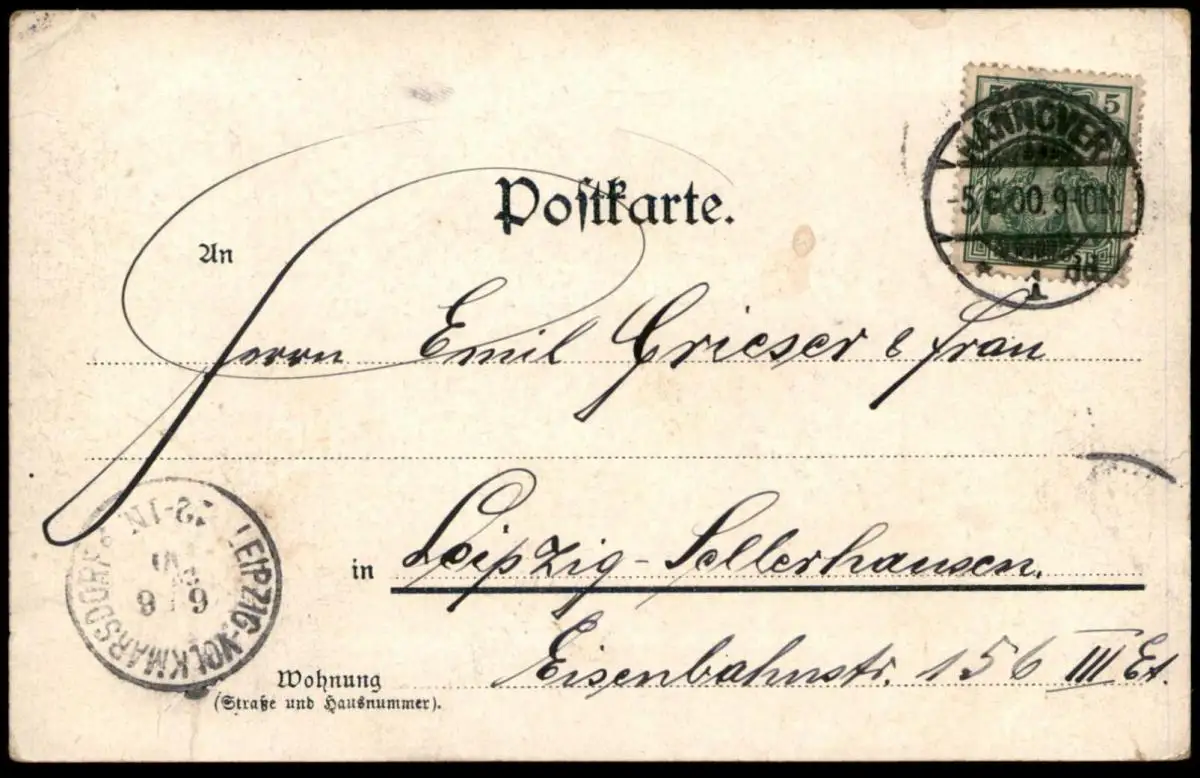 Postkarte.
5 5
HANNOVER
-5.6.00.9-10N.
* 1
An
Herrn Emil Grieser & Frau
in Leipzig-Sellerhausen.
Wohnung
(Straße und Hausnummer).
Eisenbahnstr. 156 III Et.
LEIPZIG-VOLKMARSDORF
12-1N